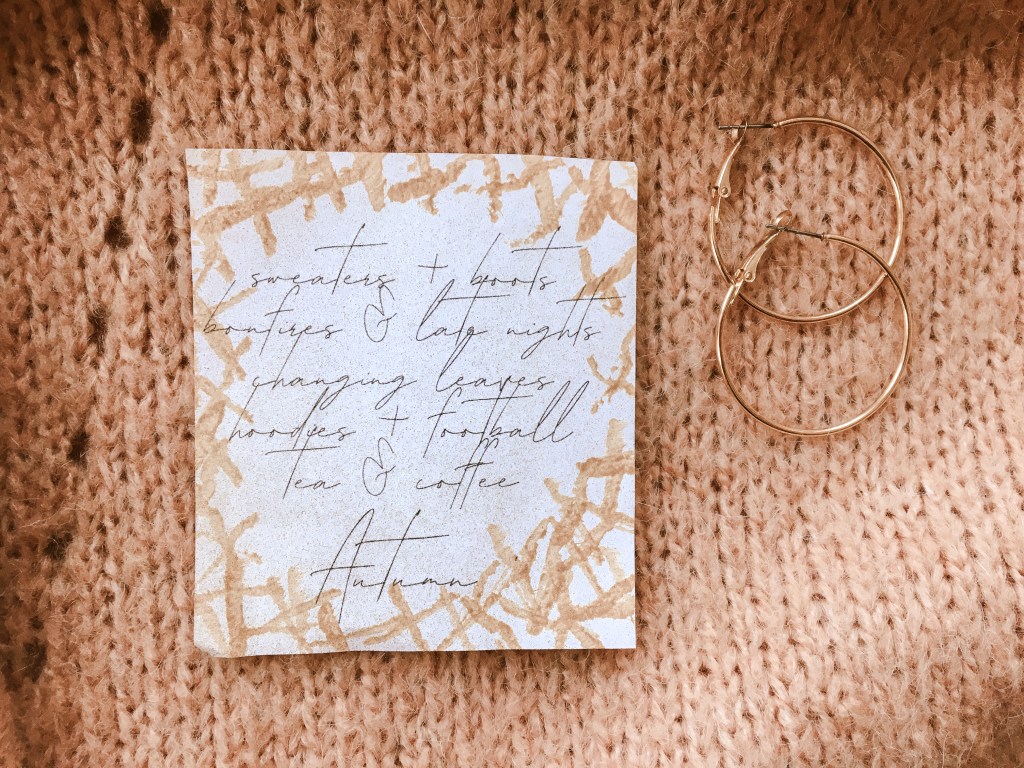 sweaters + boots
bonfires & late nights
changing leaves
hoodies + football
tea & coffee
Autumn